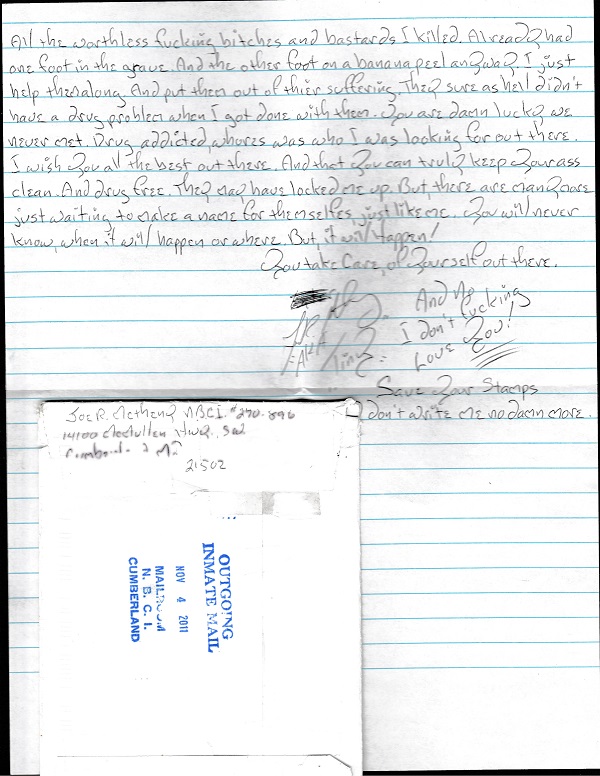 All the worthless fucking bitches and bastards I killed. Already had
one foot in the grave. And the other foot on a banana peel anyway. I just
help them along. And put them out of thier suffering. They sure as hell didn't
have a drug problem when I got done with them. You are damn lucky we
never met. Drug addicted whores was who I was looking for out there.
I wish you all the best out there. And that you can truly keep your ass
clean. And drug free. They may have locked me up. But, there are many more
just waiting to make a name for themselfes, just like me. You will never
know, when it will happen or where. But, it will happen!
You take Care, of yourself out there.
And No
I don't fucking
Love You!
Save Your Stamps
don't write me no damn more.
Joe R. Metheny NBCI. #270-896
14100 McMullen Hwy. SW
21502
OUTGOING
INMATE MAIL
NOV 4 2011
MAILROOM
N. B. C. I.
CUMBERLAND